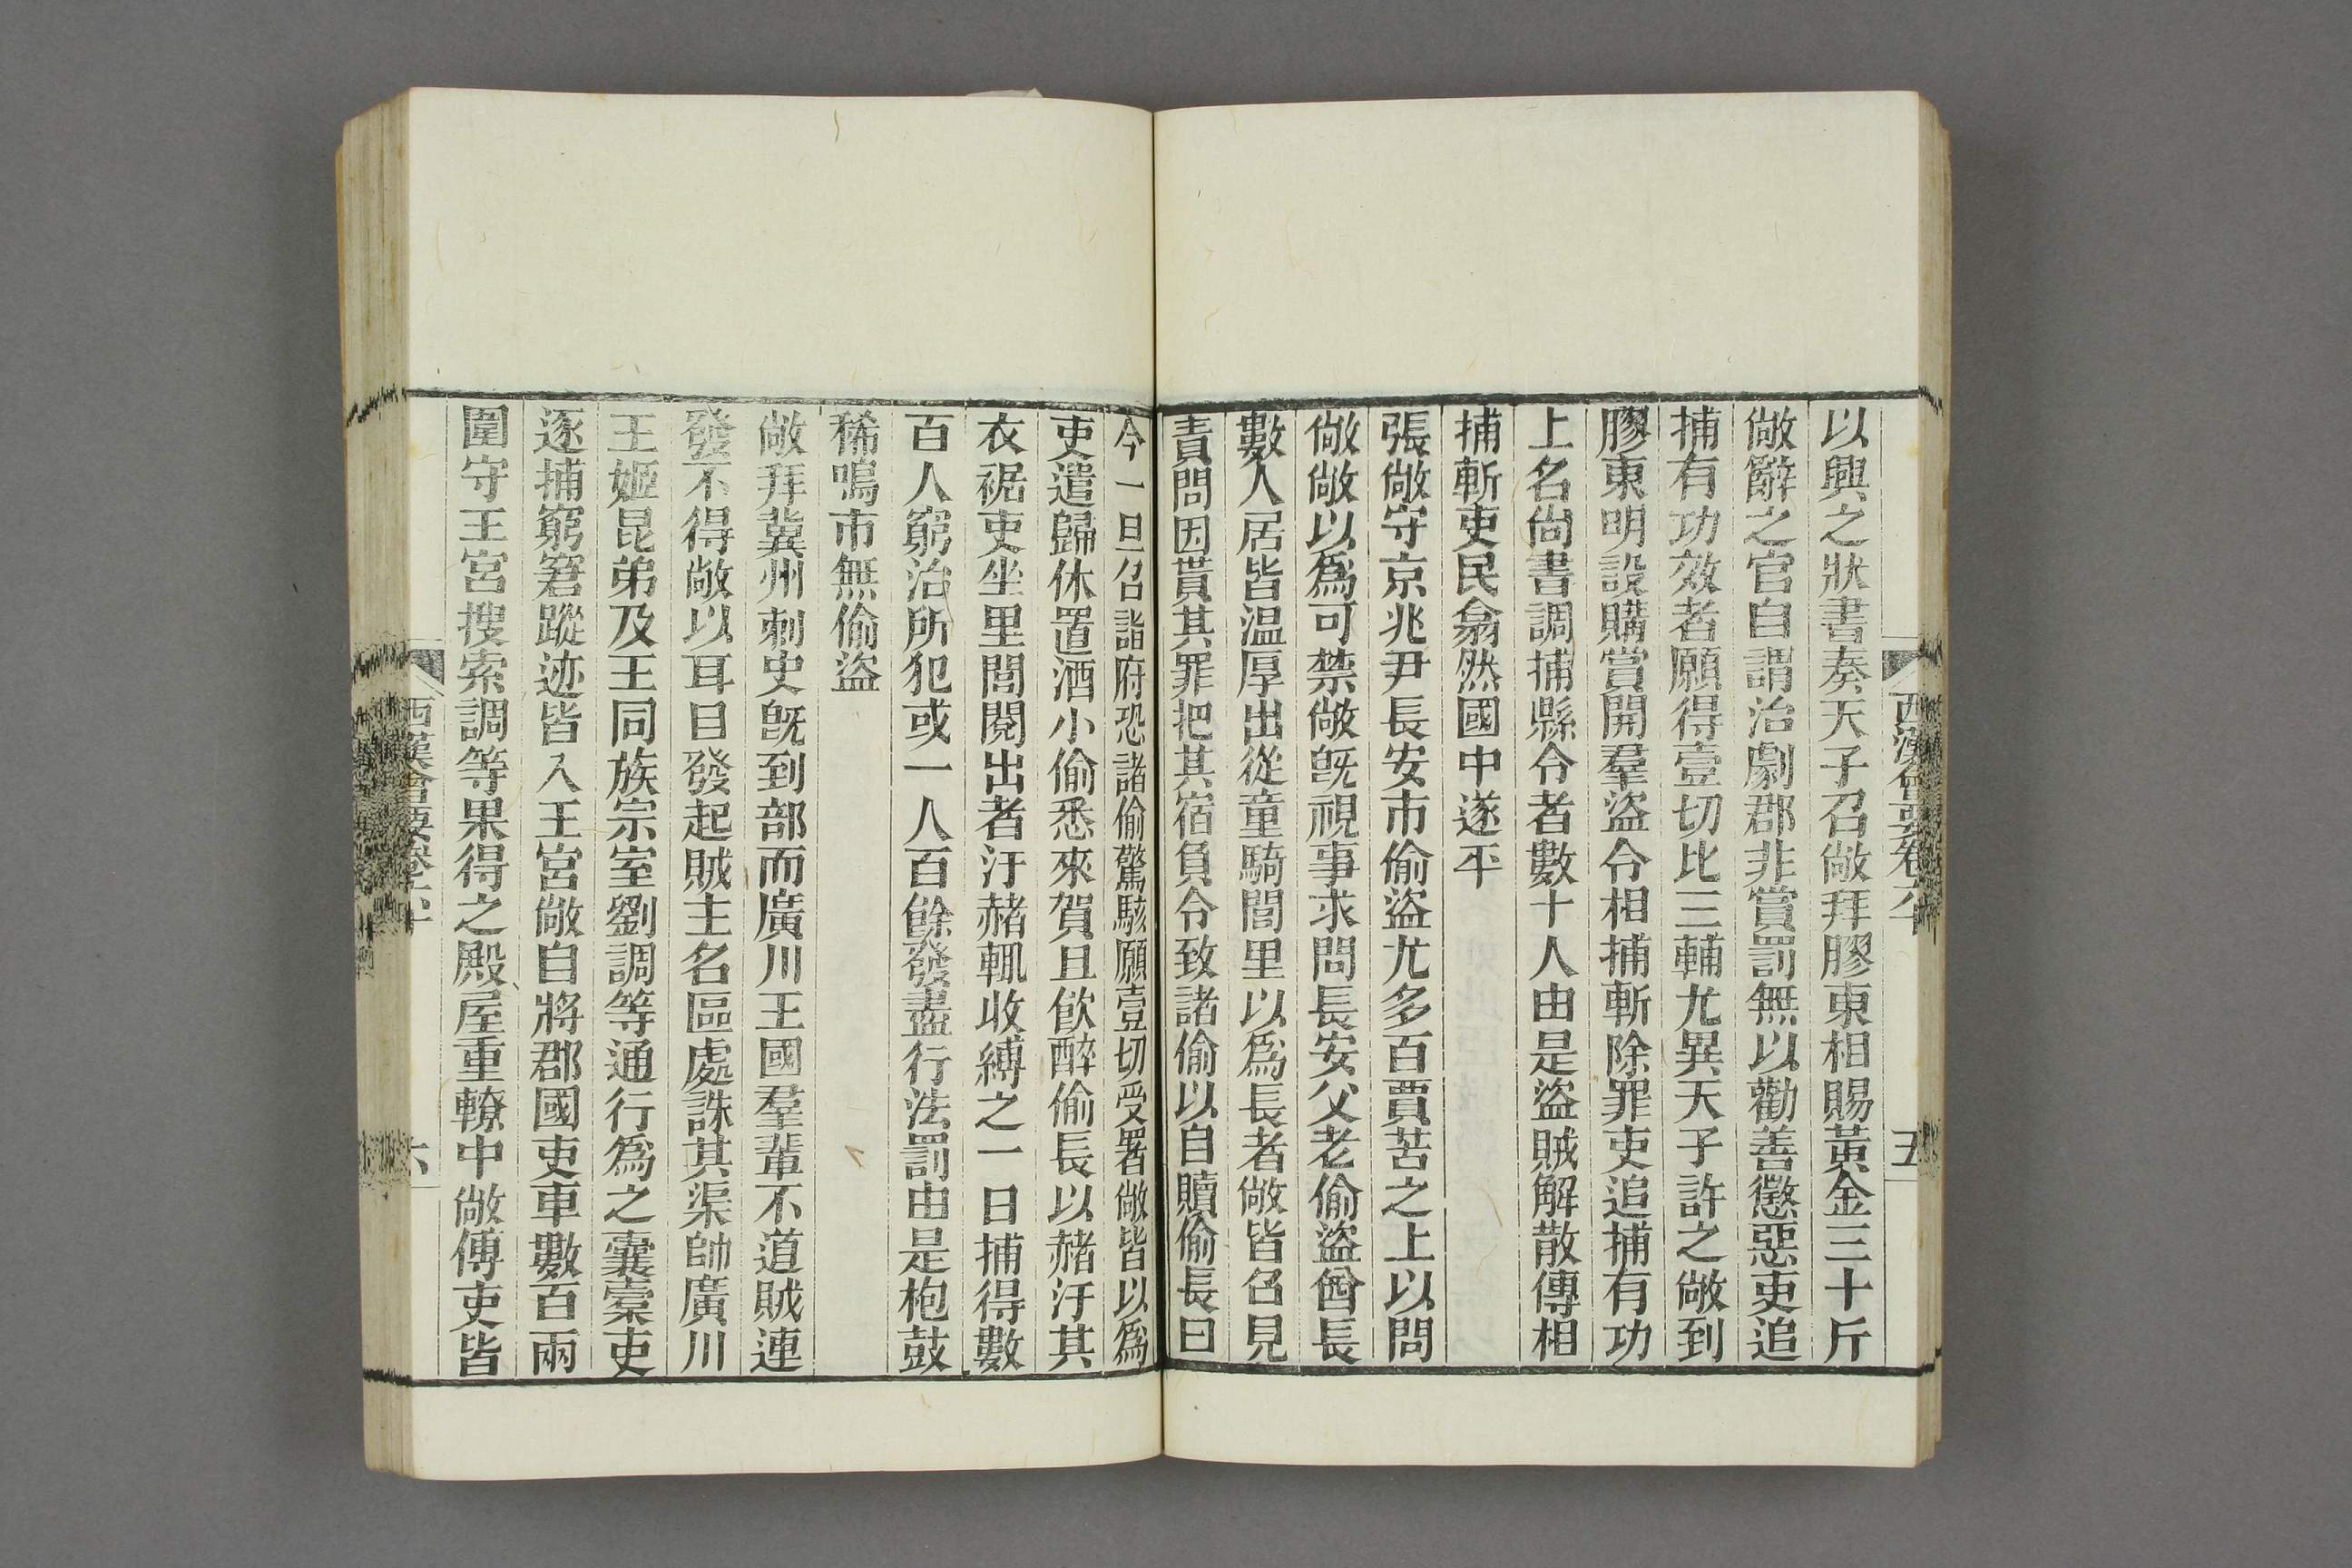 西漢會要卷六十
五
以興之狀書奏天子召敞拜膠東相賜黃金三十斤
敞辭之官自謂治劇郡非賞罰無以勸善懲惡吏追
捕有功效者願得壹切比三輔尤異天子許之敞到
膠東明設購賞開羣盜令相捕斬除罪吏追捕有功
上名尚書調捕縣令者數十人由是盜賊解散傳相
捕斬吏民翕然國中遂平
張敞守京兆尹長安市偷盜尤多百賈苦之上以問
敞敞以爲可禁敞旣視事求問長安父老偷盜酋長
數人居皆溫厚出從童騎閭里以爲長者敞皆召見
責問因貰其罪把其宿負令致諸偷以自贖偷長曰
今一旦召詣府恐諸偷驚駭願壹切受署敞皆以爲
吏遣歸休置酒小偷悉來賀且飮醉偷長以赭汙其
衣裾吏坐里閭閱出者汙赭輒收縛之一日捕得數
百人窮治所犯或一人百餘發盡行法罰由是枹鼓
稀鳴市無偷盜
敞拜冀州刺史旣到部而廣川王國羣輩不道賊連
發不得敞以耳目發起賊主名區處誅其渠帥廣川
王姬昆弟及王同族宗室劉調等通行爲之囊橐吏
逐捕窮窘蹤迹皆入王宮敞自將郡國吏車數百兩
圍守王宮搜索調等果得之殿屋重轑中敞傅吏皆
西漢會要卷六十
六